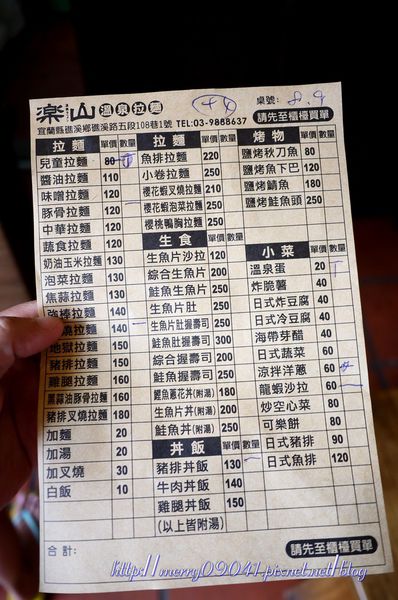 楽山 溫泉拉麵
桌號: 8.9
宜蘭縣礁溪鄉礁溪路五段108巷1號 TEL:03-9888637
請先至櫃檯買單
拉麵 單價 數量
兒童拉麵 80
醬油拉麵 110
味噌拉麵 120
豚骨拉麵 120
中華拉麵 120
蔬食拉麵 120
奶油玉米拉麵 130
泡菜拉麵 130
焦蒜拉麵 130
強棒拉麵 140
燒拉麵 140
地獄拉麵 150
豬排拉麵 150
雞腿拉麵 160
黑蒜油豚骨拉麵 160
豬排叉燒拉麵 180
加麵 20
加湯 20
加叉燒 30
白飯 10
拉麵 單價 數量
魚排拉麵 220
小卷拉麵 250
櫻花蝦叉燒拉麵 210
櫻花蝦泡菜拉麵 210
櫻桃鴨胸拉麵 250
生食 單價 數量
生魚片沙拉 120
綜合生魚片 200
鮭魚生魚片 250
生魚片肚 250
生魚片肚握壽司 250
鮭魚肚握壽司 300
綜合握壽司 200
鮭魚握壽司 250
鰹魚蔥花丼(附湯) 180
生魚片丼(附湯) 200
鮭魚丼(附湯) 250
丼飯 單價 數量
豬排丼飯 130
牛肉丼飯 140
雞腿丼飯 150
(以上皆附湯)
烤物 單價 數量
鹽烤秋刀魚 80
鹽烤魚下巴 120
鹽烤鯖魚 180
鹽烤鮭魚頭 250
小菜 單價 數量
溫泉蛋 20
炸脆薯 40
日式炸豆腐 40
日式冷豆腐 40
海帶芽醋 40
日式蔬菜 60
涼拌洋蔥 60
龍蝦沙拉 60
炒空心菜 80
可樂餅 80
日式豬排 90
日式魚排 120
合計:
請先至櫃檯買單
http://merry09041.pixnet.net/blog